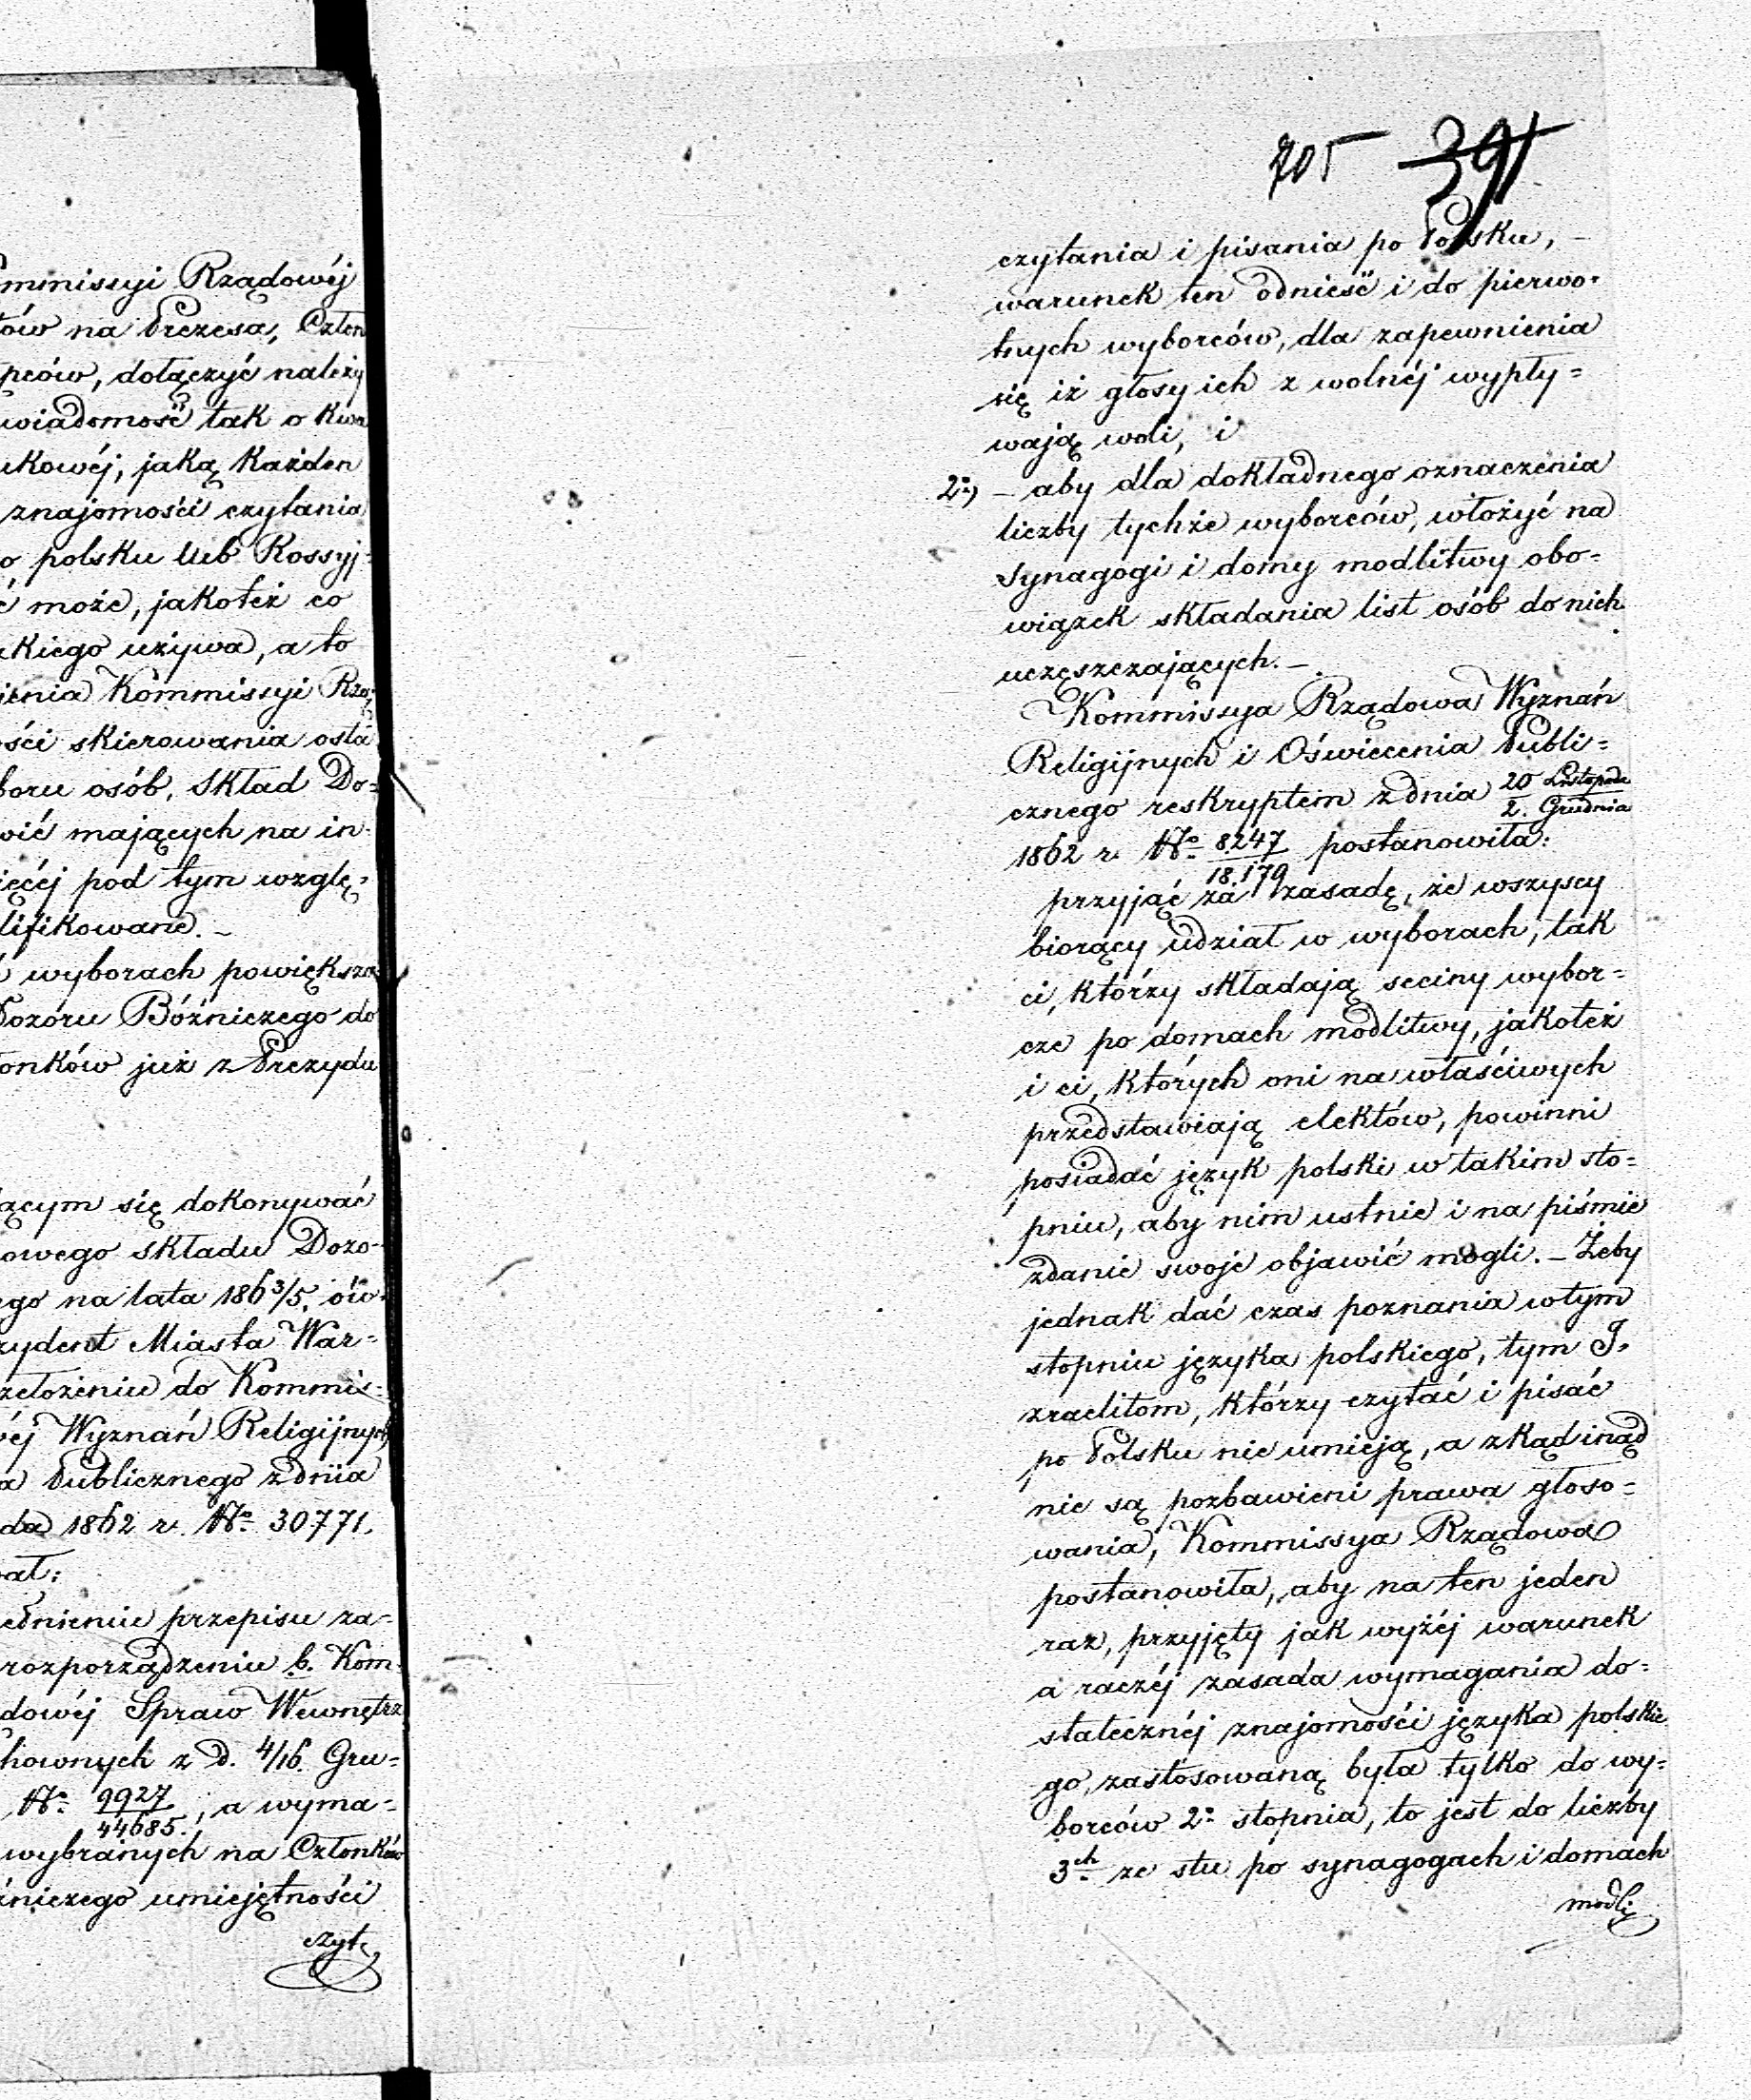 mmissyi Rządowéj
ów na Prezesa, Człon
pców, dołączyć należy
wiadomość tak o kwa
ukowéj, jaką każden
znajomości czytania
o polsku lub Rossyj-
ć może, jakoteż co
akiego używa, a to
ienia Kommissyi Rzą-
ości skierowania osta
boru osób, skład Do-
wić mających na in-
ięcéj pod tym wzglę-
lifikowane. –
wyborach powiększa
Dozoru Bóżniczego do
onków już z Prezydu
ącym się dokonywać
owego składu Dozo-
ego na lata 186 3/5, ów-
zydent Miasta War-
zełożeniu do Kommis-
éj Wyznań Religijnych
a Publicznego z dnia
da 1862 r. № 30771.
ał:
ednieniu przepisu za-
rozporządzeniu b. Kom-
dowéj Spraw Wewnętrz
hownych z d. 4/16. Gru-
№ 9927/44685., a wyma-
wybranych na Członków
źniczego umiejętności
czyt,
705 391
czytania i pisania po Polsku, –
warunek ten odnieść i do pierwo-
tnych wyborców, dla zapewnienia
się iż głosy ich z wolnéj wypły-
wają woli, i
2o) – aby dla dokładnego oznaczenia
liczby tychże wyborców, włożyć na
Synagogi i domy modlitwy obo-
wiązek składania list osób do nich
uczęszczających. –
Kommissya Rządowa Wyznań
Religijnych i Oświecenia Publi-
cznego reskryptem z dnia 20 Listopada/2. Grudnia
1862 r. № 8247/18.179 postanowiła:
przyjąć za zasadę, że wszyscy
biorący udział w wyborach, tak
ci, którzy składają seciny wybor-
cze po domach modlitwy, jakoteż
i ci, których oni na właściwych
przedstawiają elektów, powinni
posiadać język polski w takim sto-
pniu, aby nim ustnie i na piśmie
zdanie swoje objawić mogli. – Żeby
jednak dać czas poznania w tym
stopniu języka polskiego, tym I-
zraelitom, którzy czytać i pisać
po Polsku nie umieją, a zkąd inąd
nie są pozbawieni prawa głoso-
wania, Kommissya Rządowa
postanowiła, aby na ten jeden
raz, przyjęty jak wyżéj warunek
a raczéj zasada wymagania do-
statecznéj znajomości języka polskie
go, zastosowaną była tylko do wy-
borców 2o stopnia, to jest do liczby
3ch ze stu po synagogach i domach
modli,